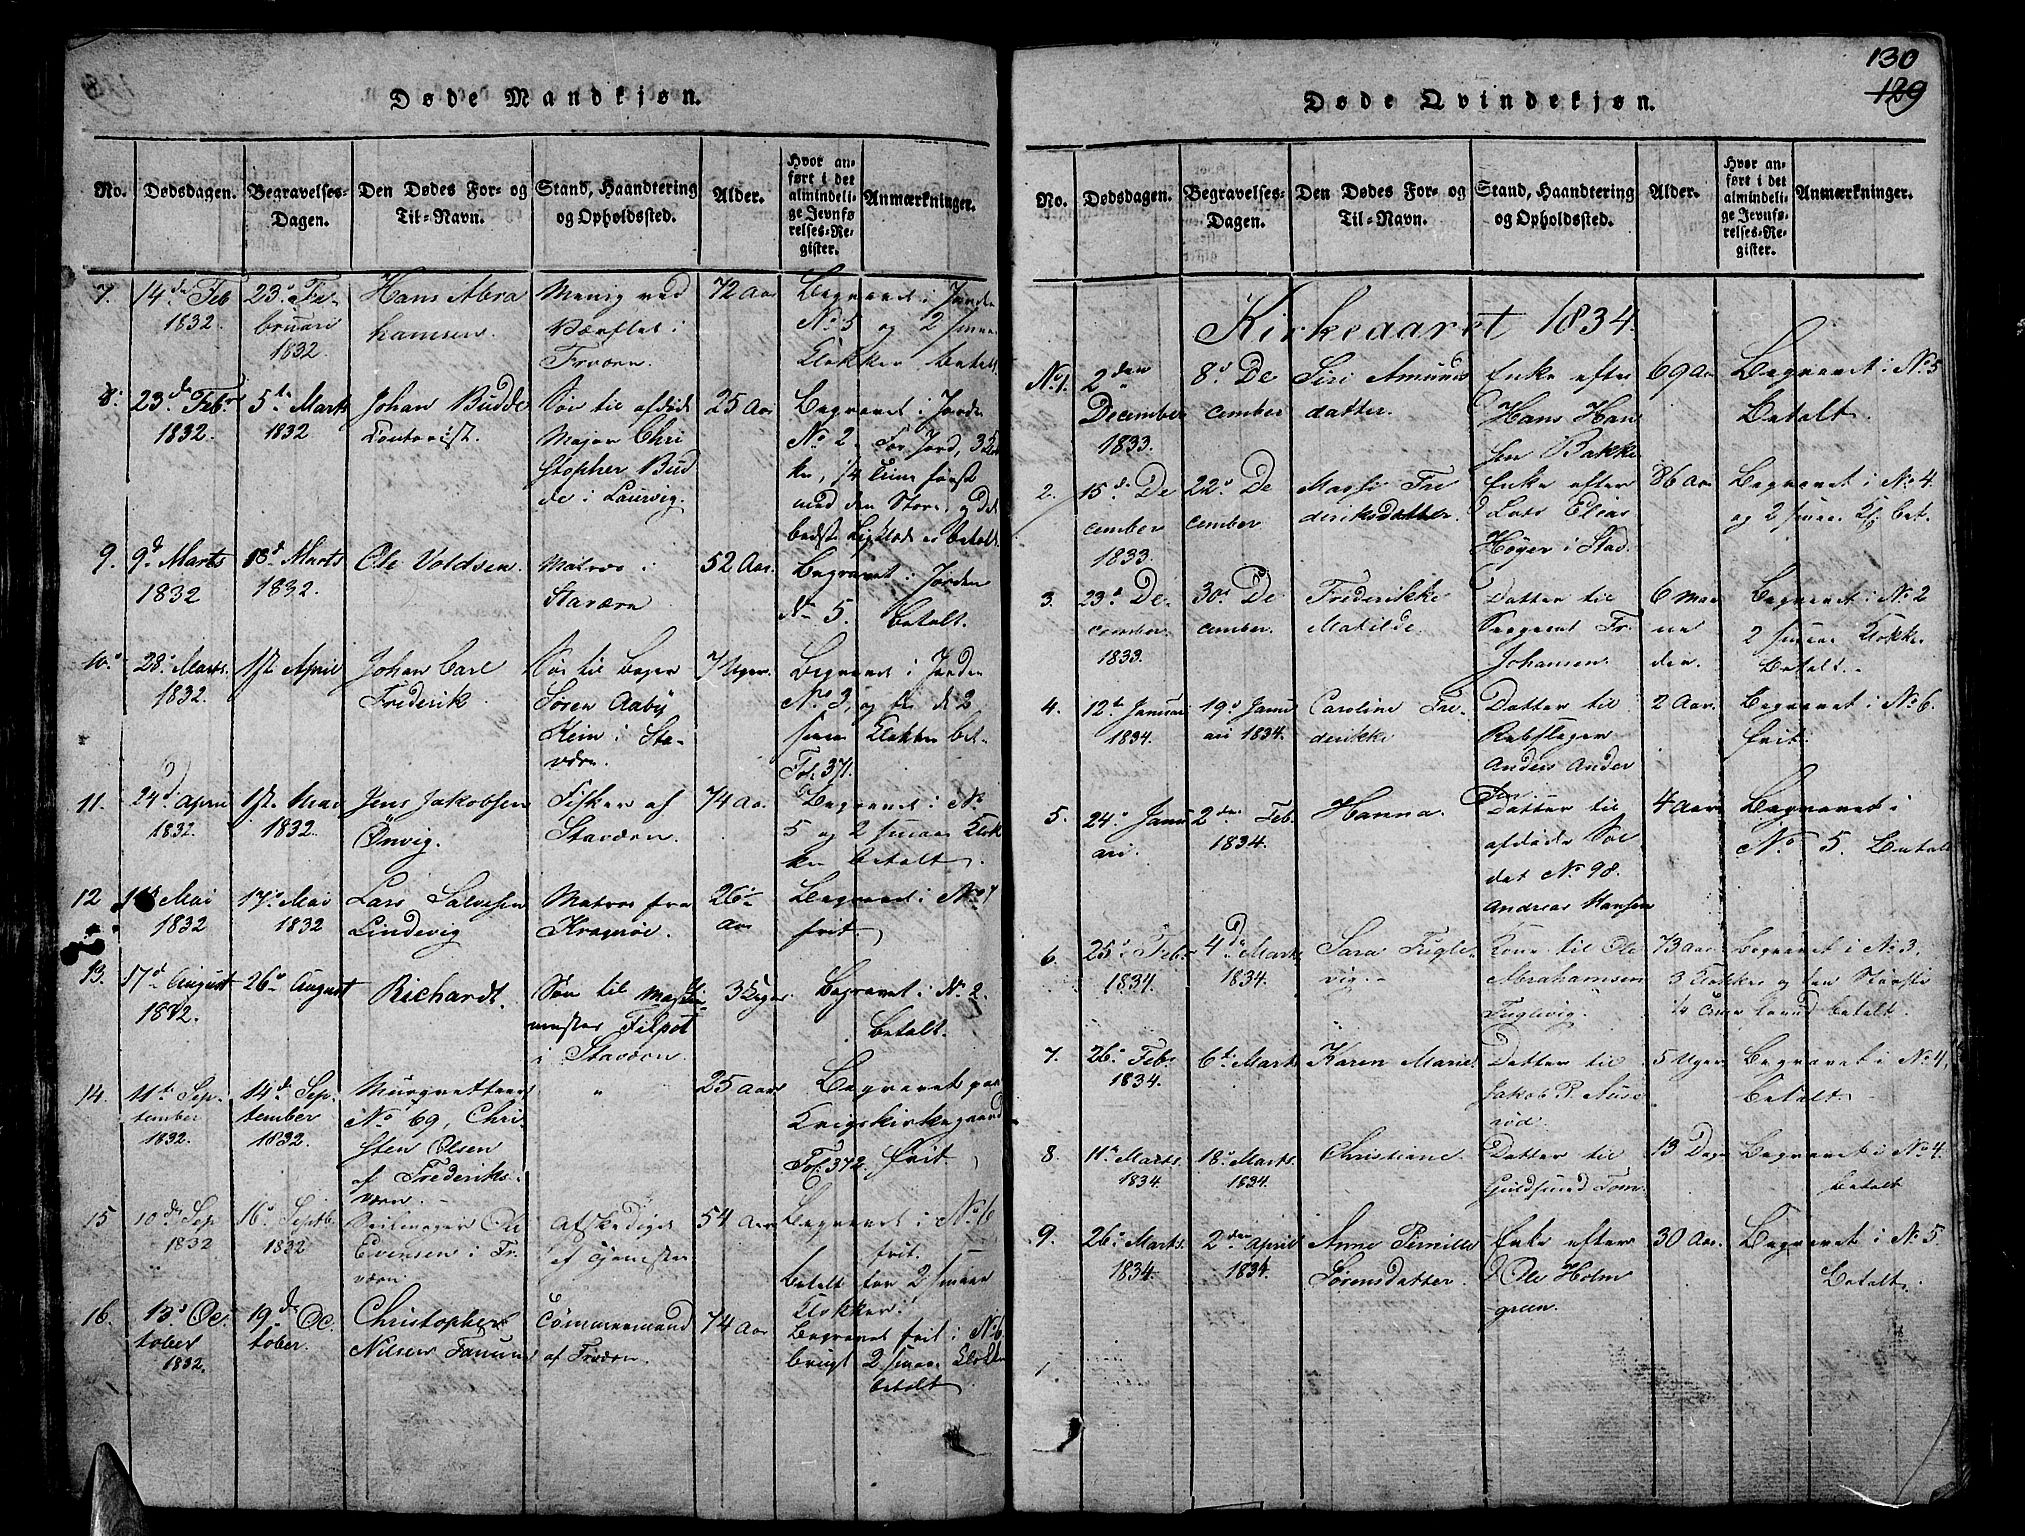 Døde Mandkjøn.
No. Dødsdagen. Begravelses-Dagen. Den Dødes For- og Til-Navn. Stand, Haandtering og Opholdssted. Alder. Hvor anført i det almindelige Jevnførelses-Register. Anmærkninger.
7. 14de Feb 1832. 23de Februari 1832. Hans Abrahamsen. ved Værftet i Frværn. 72 Aar Begravet i Jorden No 5 og 2 smaa Klokker betalt.
8. 23de Febr 1832. 5te Marts 1832 Johan Budde Contorist. Søn til afdøde Major Christopher Budde i Laurvig. 25 Aar Begravet i Jorden No 2. For Jord, 3 Klokker, med den Store, og det bedste Ligklæde er betalt.
9. 9de Marts 1832 18de Marts 1832. Ole Voldsen. Matros i Staværn 52 Aar. Begravet i Jorden No 5. betalt.
10. 28de Marts. 1832. 1ste April Johan Carl Frederik Søn til Søren Aaby Keim i Staværn. 7 Uger. Begravet i Jorden No 3, og de 2 smaa Klokker bet. Fol. 371.
11. 24de April 1832. 1ste Mai 1832. Jens Jakobsen Önvig. Fisker af Staværn. 74 Aar Begravet i No 5 og 2 smaa Klokker betalt.
12 Mai 1832 17de Mai 1832 Lars Salvesen Lindevig Matros fra Kragerøe. 26 Aar Begravet i No 4 frit.
13. 17de August 1832. 26de August Richardt. Søn til mester Filpot i Staværn. 3 Uger Begravet i No 2. betalt.
14. 11te September 1832. 14de September 1832. No 69, Christen Olsen af Frederiksværn. " 25 Aar Begravet paa Krigskirkegaard Fol. 372. frit.
15 10de Sep 1832 16de Septb. 1832 Seilmager Ole Evensen i Frværn. Afskediget af Tjenesten 54 Aar Begravet i No 6 frit. Betalt for 2 smaa Klokker.
16. 13de October 1832. 19de October. Christopher Nilsen Tømmermand af Frværn. 74 Aar Begravet frit i No 6. brugt 2 smaa Klokker betalt
130
129
Døde Qvindekjøn.
No. Dødsdagen. Begravelses-Dagen. Den Dødes For- og Til-Navn. Stand, Haandtering og Opholdssted. Alder. Hvor anført i det almindelige Jevnførelses-Register. Anmærkninger.
Kirkeaaret 1834.
No 1. 2den December 1833. 8de December Siri Amundsdatter. Enke efter Hans Hansen Bakke 69 Aar Begravet i No 5 Betalt.
2. 15de December 1833. 22de December Frederiksdatter. Enke efter Lars Elias Høyer i Stad. 86 Aar Begravet i No 4. og 2 smaa Kl. bet.
3. 23de December. 1833. 30de December. Frederikke Matilde. Datter til Sergeant Fr. Johansen. 6 Maaneder. Begravet i No 2 2 smaa Klokker Betalt.
4. 12te Januar 1834. 19de Januari 1834. Caroline Frederikke Datter til Rebslager Anders Andersen 2 Aar. Begravet i No 6. frit.
5. 24de Januari. 2den Feb. 1834. Hanna. Datter til afdøde Soldat No 98. Andreas Hansen 4 Aar Begravet i No 5. Betalt
6. 25de Febr. 1834. 4de Marts 1834. Sara Fuglevig. Kone til Ole Abrahamsen Fuglevig. 73 Aar Begravet i No 3. 3 Klokker og den Største betalt.
7. 26de Febr. 1834. 6te Marts Karen Marie. Datter til Jakob P. 5 Uger Begravet i No 4, Betalt.
8. 11te Marts. 1834. 18de Marts. 1834. Christiane. Datter til Guldsmed Tom. 13 Dage Begravet i No 4. betalt
9. 26de Marts. 1834. 2den April 1834. Anne Pernille Sørensdatter. Enke efter Ole Holmgreen. 30 Aar. Begravet i No 5 Betalt.